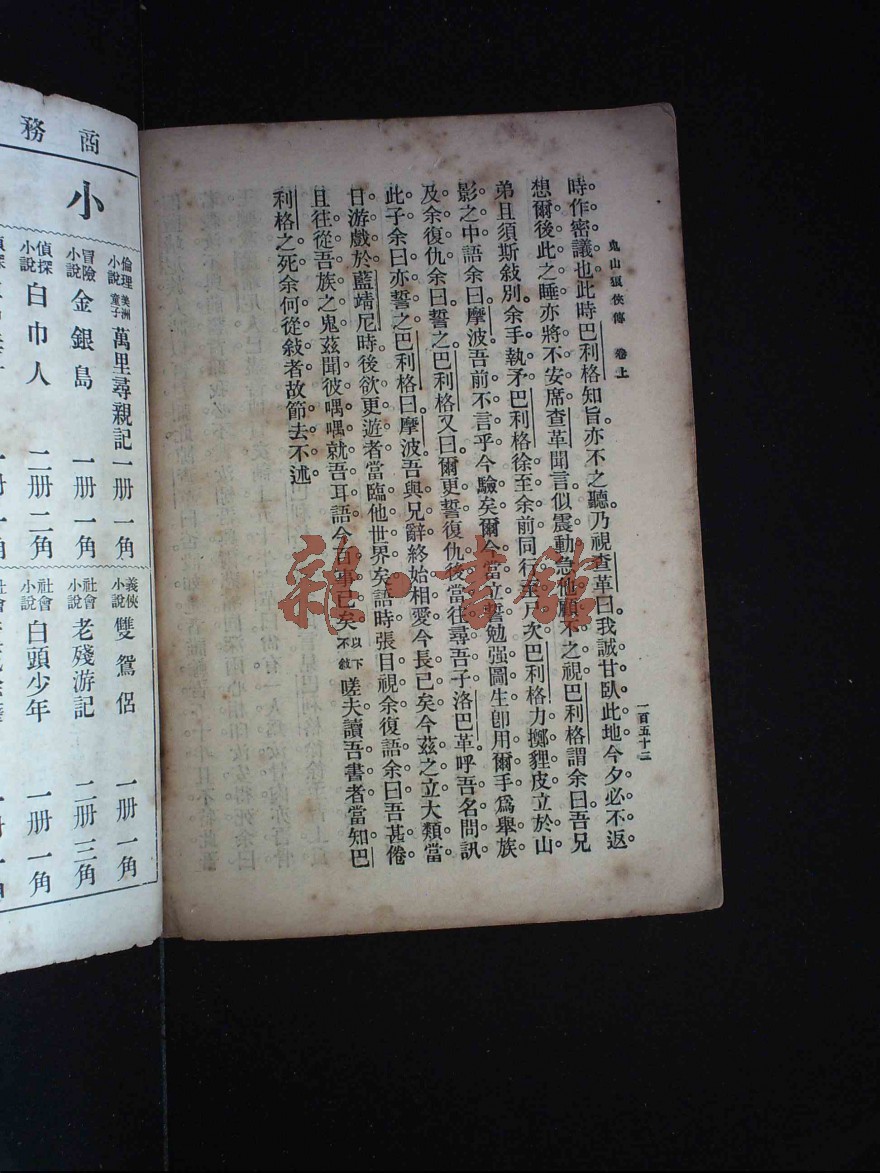 鬼山狼俠傳 卷上
一百五十二
時作密議也此時巴利格知旨亦不之聽乃視查革曰我誠甘臥此地今夕必不返
想爾後此之睡亦將不安席查革聞言似震動急他顧不之視巴利格謂余曰吾兄
弟且須斯敍別。余手執矛巴利格徐至余前同行至尺次巴利格力擲貍皮立於山
影之中語余曰摩波吾前不言乎今驗矣爾今當立誓勉强圖生卽用爾手爲舉族
及余復仇余曰誓之巴利格又曰爾更誓復仇後當往尋吾子洛巴革呼吾名問訊
此子余曰亦誓之巴利格曰摩波吾與兄辭終始相愛今長已矣今茲之立大類當
日游戲於藍靖尼時後欲更遊者當臨他世界矣語時張目視余復語余曰吾甚倦
且往從吾族之鬼茲聞彼喁喁就吾耳語今百事已矣以下不敍嗟夫讀吾書者當知巴
利格之死余何從敍者故節去不述。
商務
小
倫理小說 美洲童子 萬里尋親記 一册 一角
冒險小說 金銀島 一册 一角
偵探小說 白巾人 二册 二角
義俠小說 雙鴛侶 一册 一角
社會小說 老殘游記 二册 三角
社會小說 白頭少年 一册 一角
雜·書館